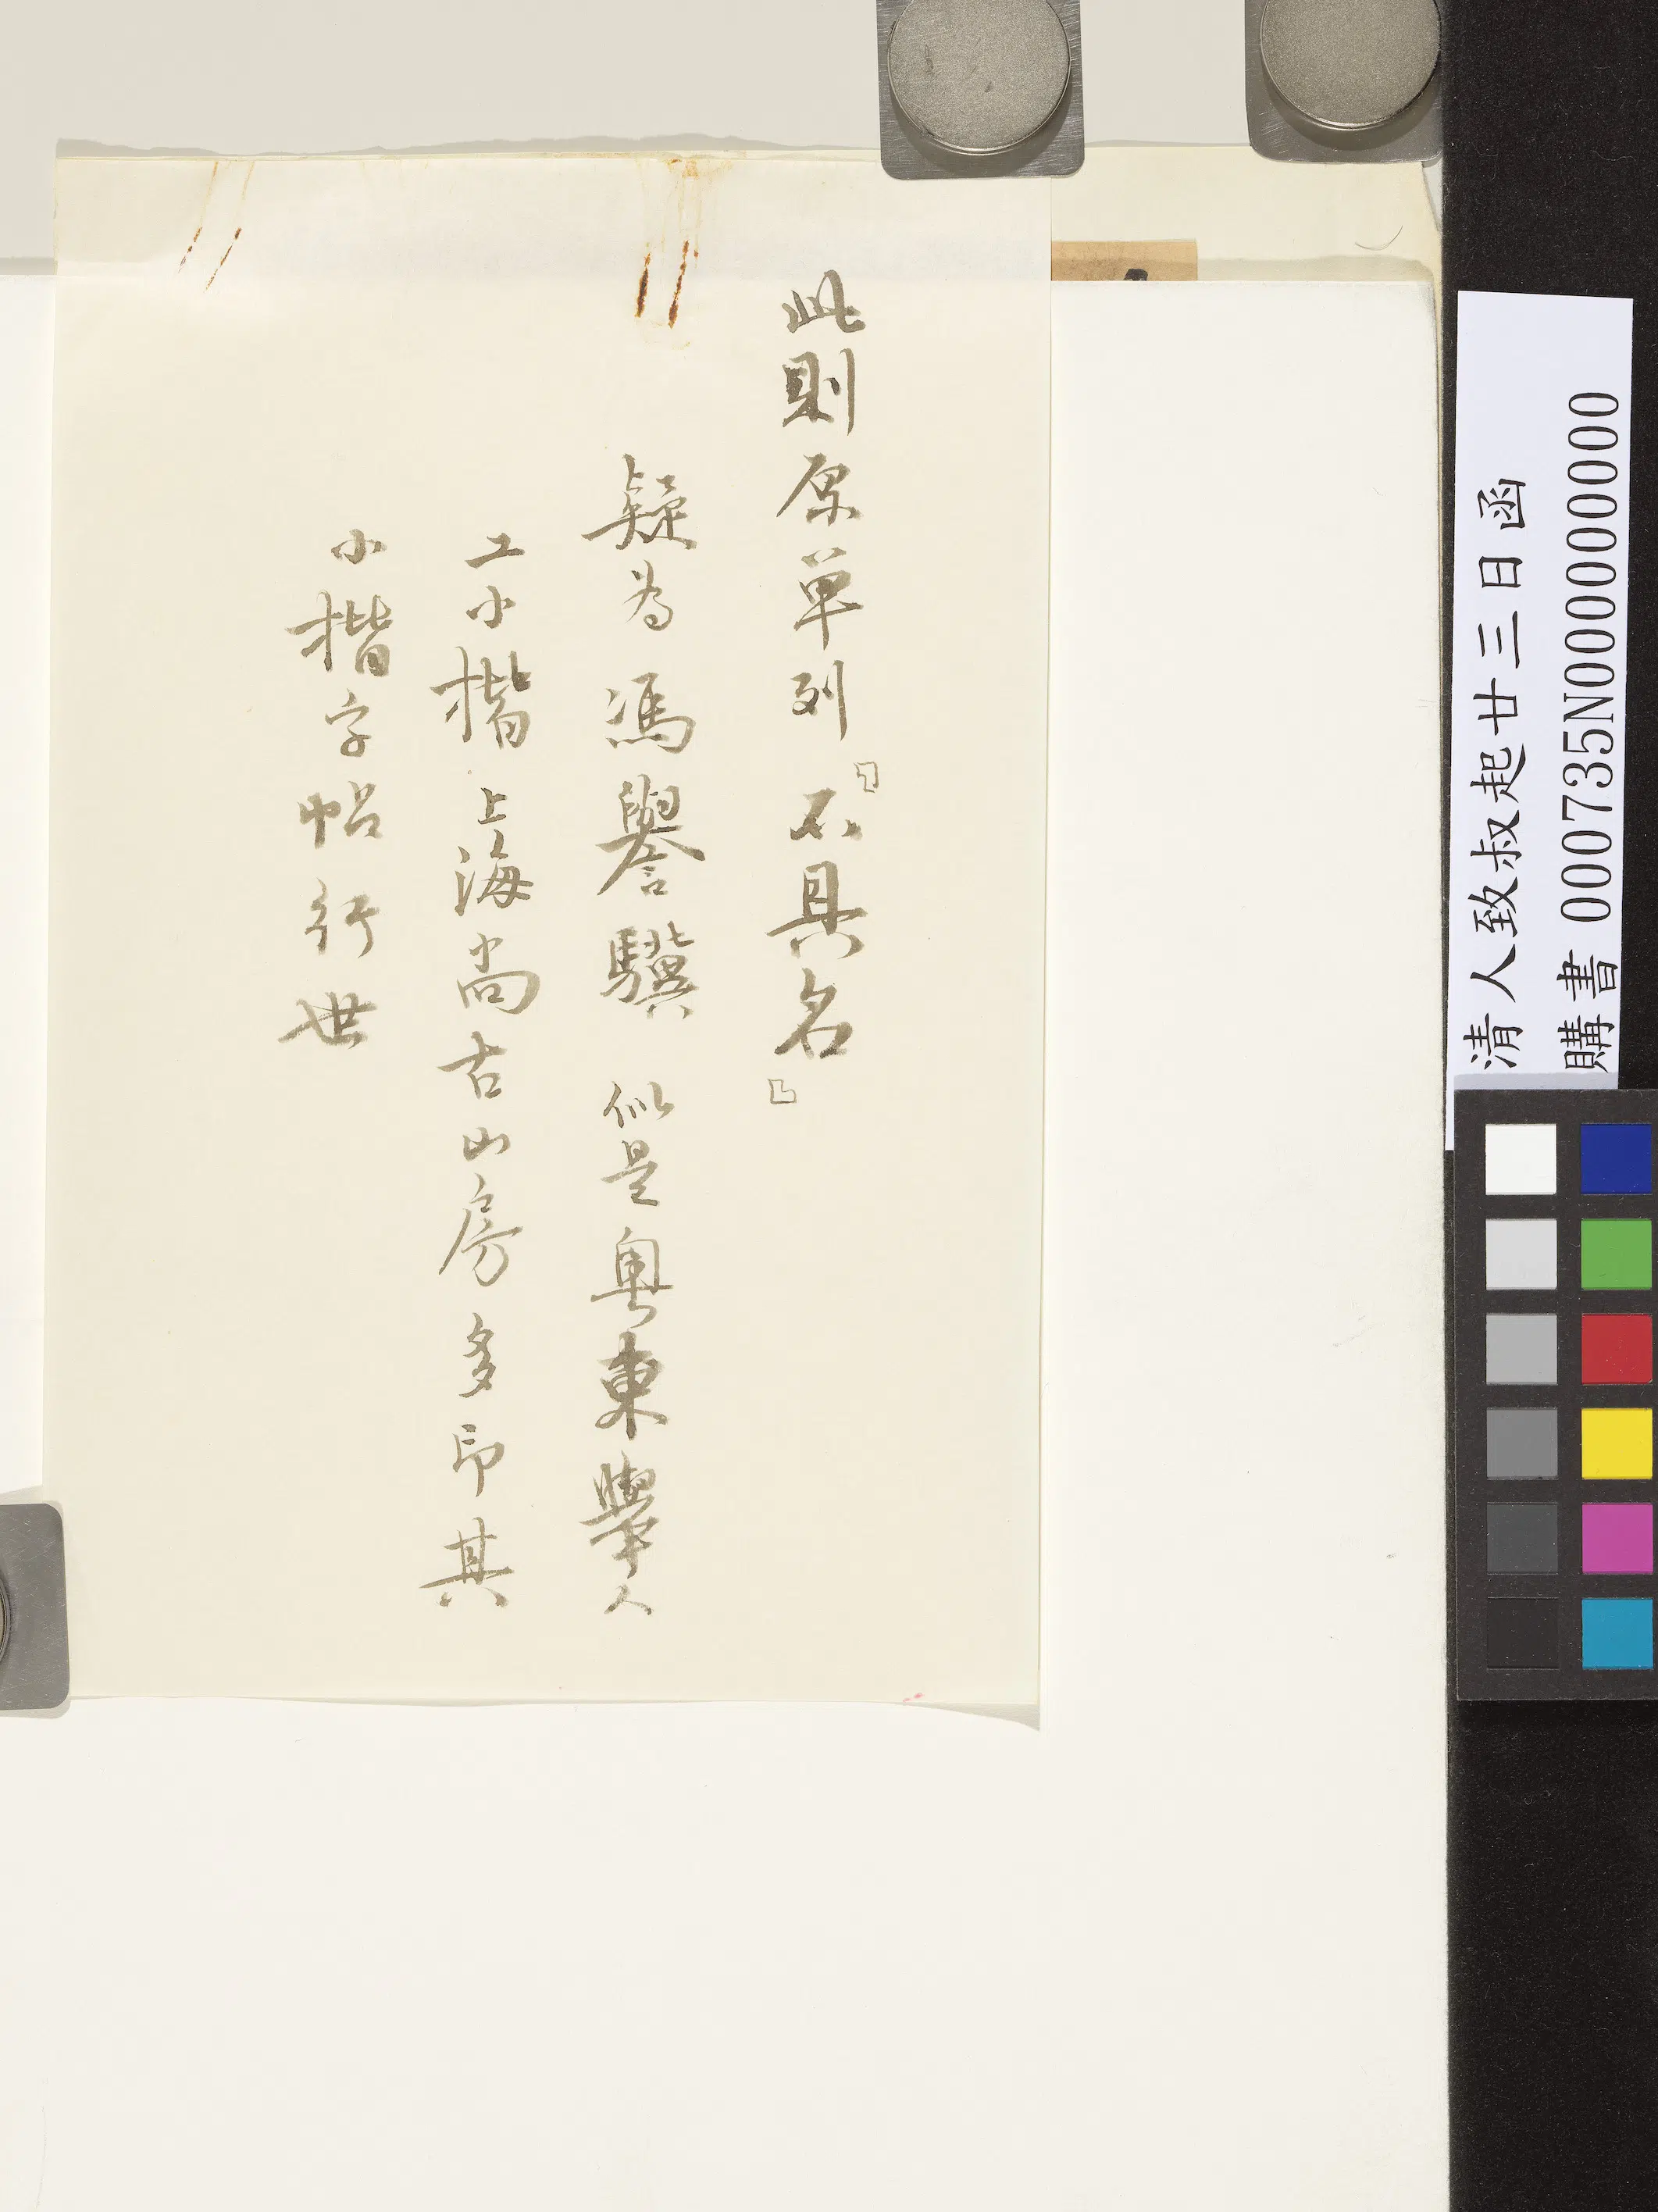 此則原單列﹃不具名﹄
疑為馮譽驥 似是粵東舉人
工小楷 上海尚古山房多印其
小楷字帖行世
清人致叔起廿三日函
購書 000735N000000000